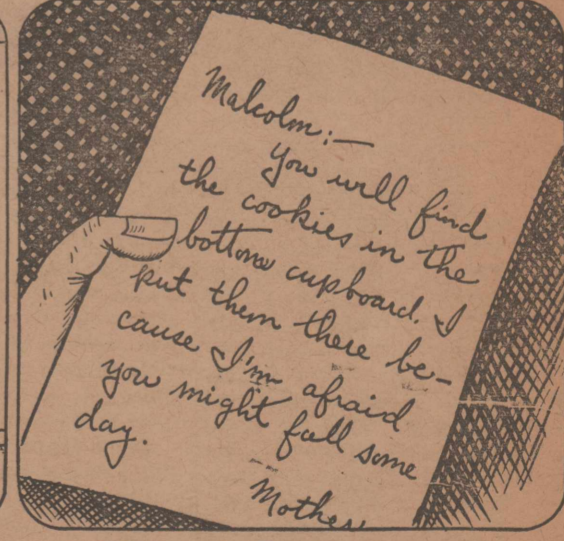 Malcolm:—
You will find
the cookies in the
bottom cupboard. I
put them there be-
cause I'm afraid
you might fall some
day.
Mother